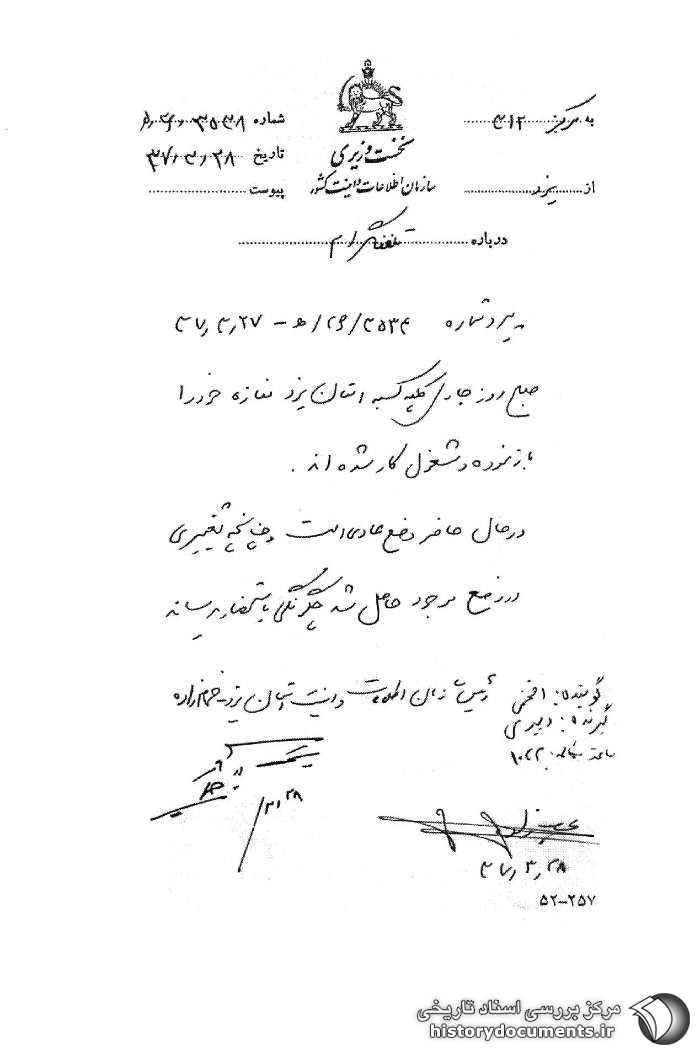 به مرکز ۳۱۲
شماره ۳۵۳۸/۲۶/ه‍
نخست وزیری
تاریخ ۳۷/۳/۲۸
سازمان اطلاعات و امنیت کشور
از یزد
پیوست
درباره تلفنگرام
پیرو شماره ۳۵۳۴/۲۶/ه‍ - ۳۷/۳/۲۷
صبح روز جاری کلیه کسبه استان یزد مغازه خود را
باز نموده و مشغول کار شده اند.
در حال حاضر وضع عادی است و چنانچه تغییری
در وضع موجود حاصل شد چگونگی باستحضار میرساند
رئیس سازمان اطلاعات و امنیت استان یزد
گوینده: افخمی
گیرنده: دبیری
ساعت مکالمه: ۱۰۲۲
۳/۲۸
۳۷/۳/۲۸
۵۲-۲۵۷
مرکز بررسی اسناد تاریخی
historydocuments.ir